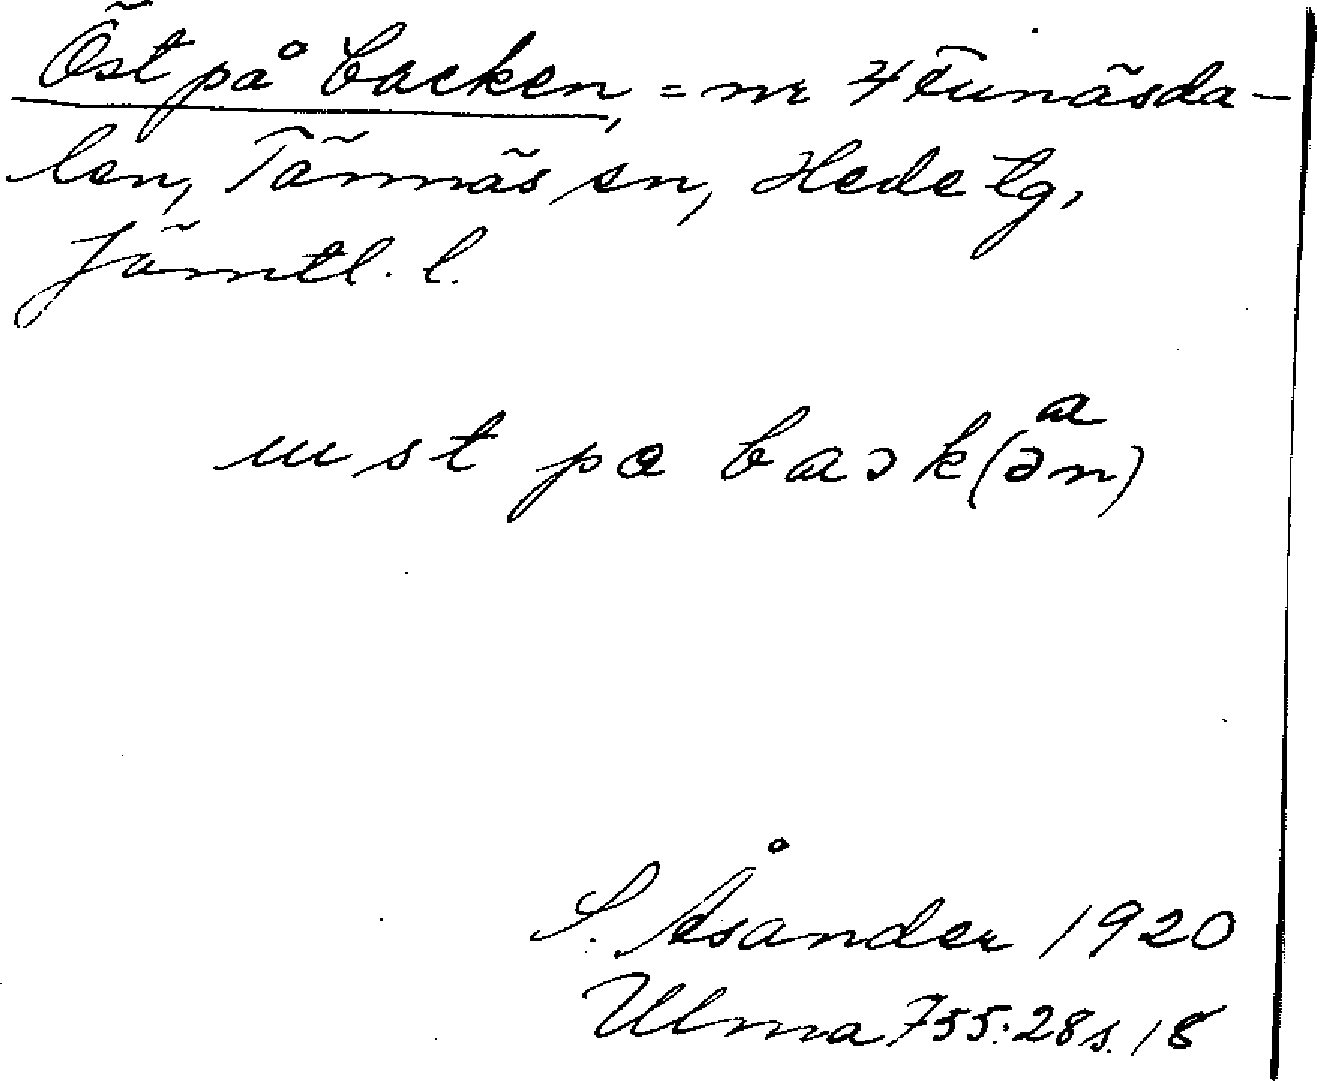 Öst på backen, = nr 4 Funäsda-
len, Tännäs sn, Hede tg,
Jämtl. l.
a
ust pa baɔk(ən)
S. Åsander 1920
Ulma 755:28 s. 18